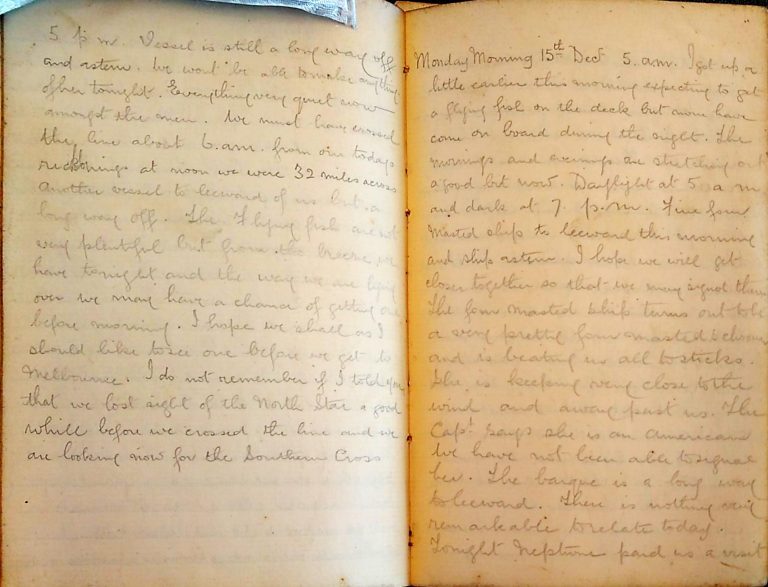 5 p.m. Vessel is still a long way off
and astern. We wont be able to make anything
of her tonight. Everything very quiet now
amongst the men. We must have crossed
the line about 6.a.m. from our todays
reckonings at noon we were 32 miles across
Another vessel to leeward of us but a
long way off. The Flying fish are not
very plentiful but from the breeze we
have tonight and the way we are lying
over we may have a chance of getting one
before morning. I hope we shall as I
should like to see one before we get to
Melbourne. I do not remember if I told you
that we lost sight of the North Star a good
while before we crossed the line and we
are looking now for the Southern Cross
Monday Morning 15th Dec 5.a.m. I got up a
little earlier this morning expecting to get
a flying fish on the deck but none have
come on board during the night. The
mornings and evenings are stretching out
a good bit now. Daylight at 5 a m
and dark at 7. p.m. Fine four
masted ship to leeward this morning
and ship astern. I hope we will get
closer together so that we may signal them
The four masted ship turns out to be
a very pretty four masted schooner
and is beating us all to sticks.
She is keeping very close to the
wind and away past us. The
Capt says she is an American
We have not been able to signal
her. The barque is a long way
to leeward. There is nothing very
remarkable to relate today.
Tonight Neptune paid us a visit